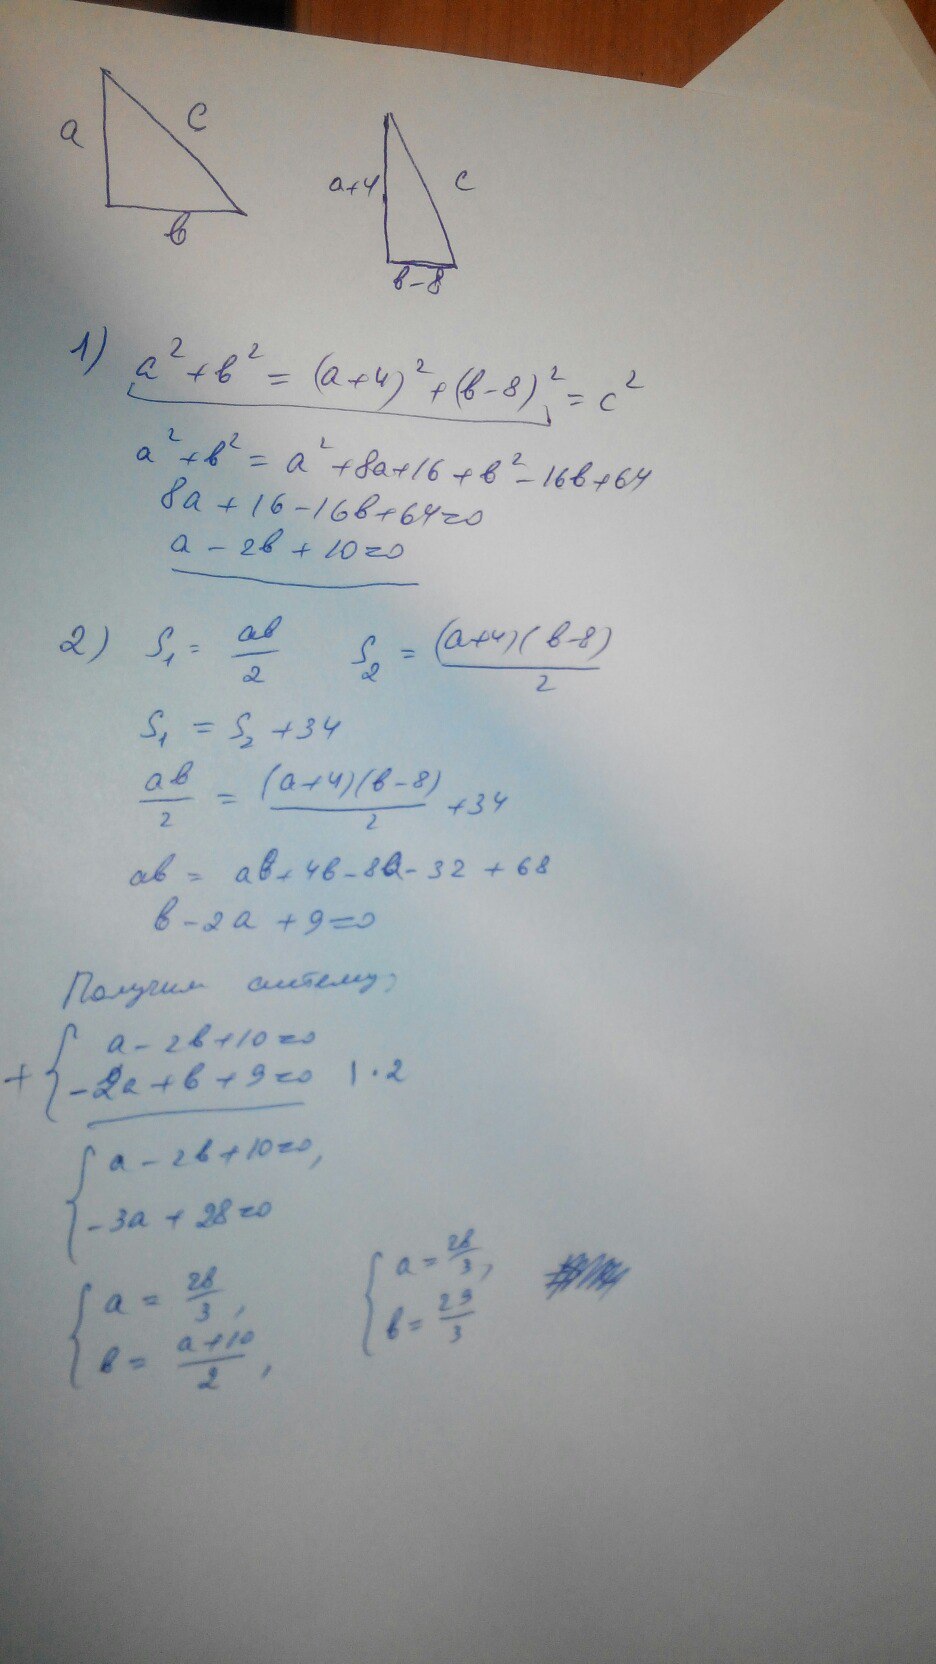 a c в
a+4 c в-8
1) a² + в² = (a+4)² + (в-8)² = c²
a² + в² = a² + 8a + 16 + в² - 16в + 64
8a + 16 - 16в + 64 = 0
a - 2в + 10 = 0
2) S₁ = aв/2 S₂ = (a+4)(в-8)/2
S₁ = S₂ + 34
aв/2 = (a+4)(в-8)/2 + 34
aв = aв + 4в - 8a - 32 + 68
в - 2a + 9 = 0
Получим систему,
+ { a - 2в + 10 = 0
-2a + в + 9 = 0 | · 2
{ a - 2в + 10 = 0,
-3a + 28 = 0
{ a = 28/3, { a = 28/3,
в = a+10/2, в = 29/3